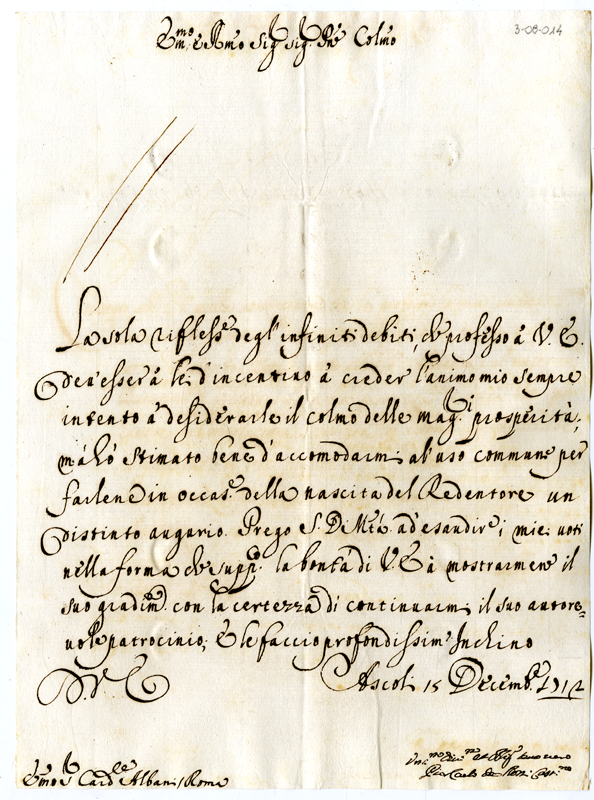 3-08-014
Em.mo e R̃mo Sig.r Sig.r P̃ne Colmo
La sola rifless.e degl'infiniti debiti, che professo à V. E.
deu'esserà lei d'incentiuo à creder l'animo mio sempre
intento à desiderarle il colmo delle mag.ri prosperità;
mà hò stimato bene d'accomodarmi al'uso commune per
farlene in occas.e della nascita del Redentore un
distinto augurio. Prego S. D. Mtà ad'esaudire i miei uoti
nella forma che supp.co la bontà di V. E. à mostrarmene il
suo gradim.to con la certezza di continuarmi il suo autore=
uole patrocinio; E le faccio profondissimo Inchino
D. V. E.
Ascoli 15 Decemb.e 1712
Em.o S. Card.le Albani / Roma